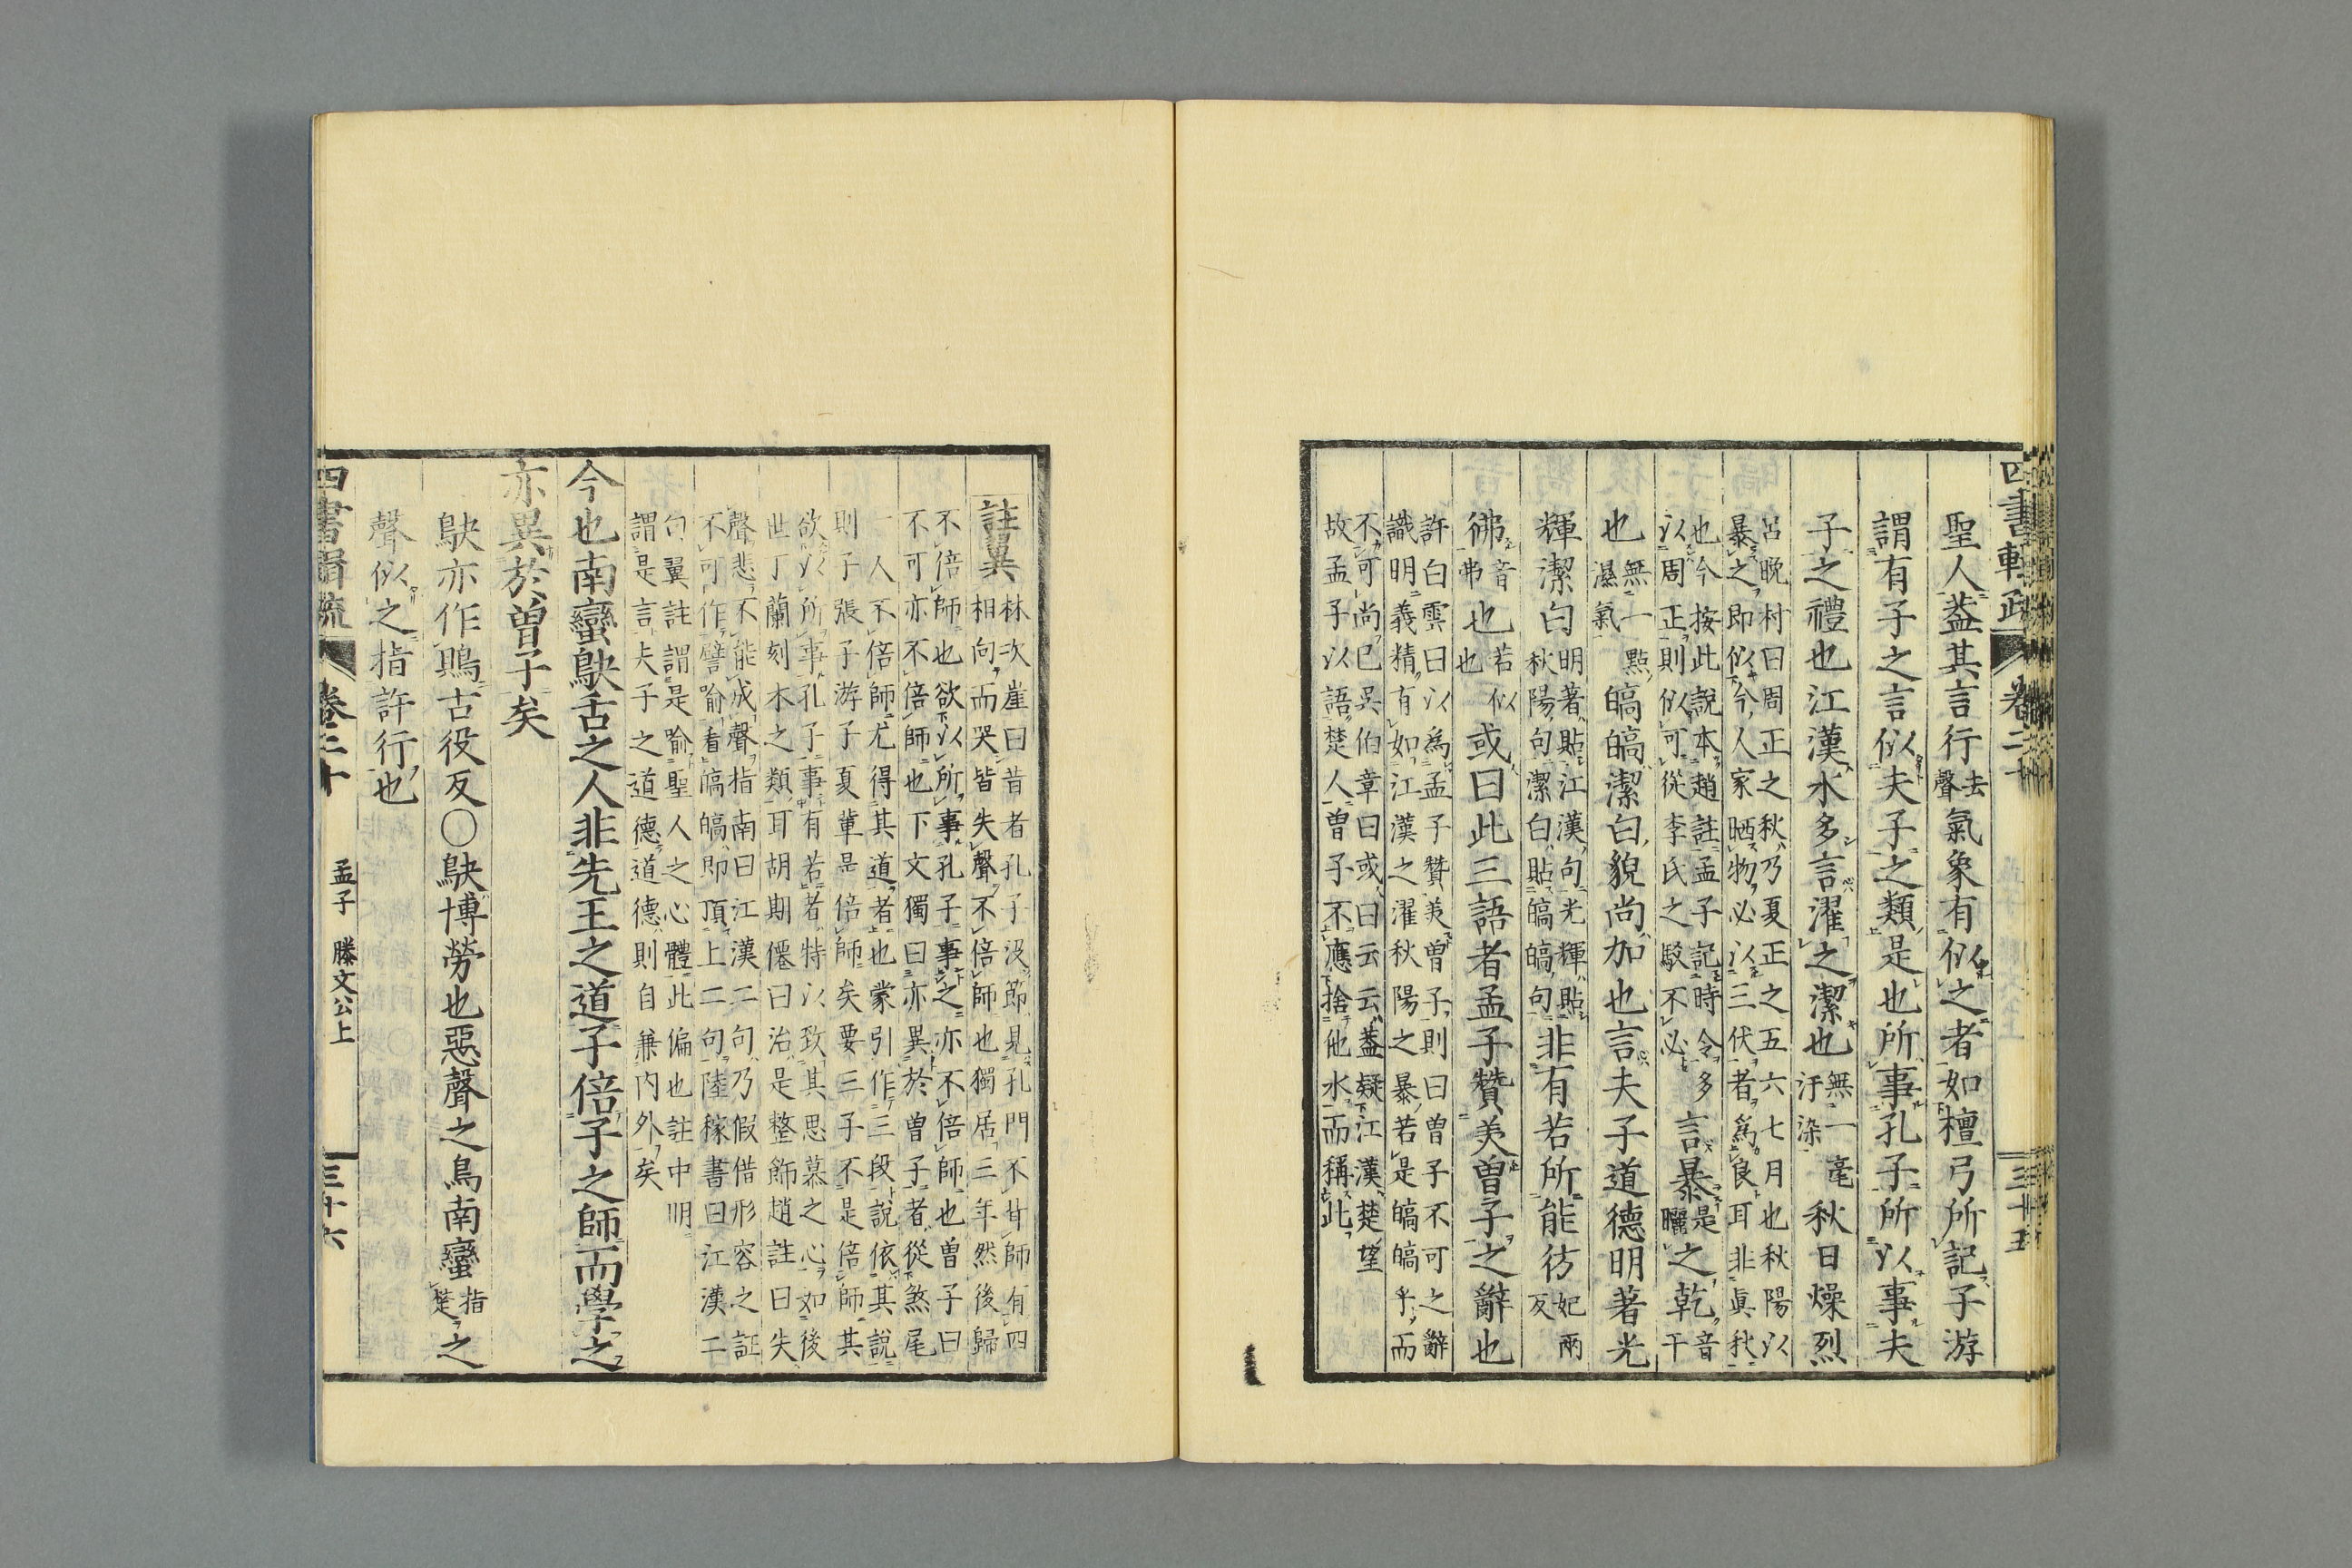 四書輯疏 卷二十 三十五
聖人葢其言行
去
聲
氣象有似之者如檀弓所記子游
謂有子之言似夫子之類是也所事孔子所以事夫
子之禮也江漢水多言濯之潔也
無一毫
汙染
秋日燥烈
呂晩村曰周正之秋乃夏正之五六七月也秋陽以
暴之即似今人家晒物必以三伏者爲良耳非眞秋
也今按此說本趙註孟子記時令多
以周正則似可從李氏之駁不必
言暴
是
曬
之乾
音
干
也
無一點
濕氣
皜皜潔白貌尚加也言夫子道德明著光
輝潔白
明著貼江漢句光輝貼
秋陽句潔白貼皜皜句
非有若所能彷
妃兩
反
彿
音
弗
也
若似
也
或曰此三語者孟子贊美曾子之辭也
許白雲曰以為孟子贊美曾子則曰曾子不可之辭
識明義精有如江漢之濯秋陽之暴若是皜皜乎而
不可尚已呉伯章曰或曰云云葢疑江漢楚望
故孟子以語楚人曾子不應捨他水而稱此
註翼
林次崖曰昔者孔子沒節見孔門不甘師有四
相向而哭皆失聲不倍師也獨居三年然後歸
不倍師也欲以所事孔子事之亦不倍師也曾子曰
不可亦不倍師也下文獨曰亦異於曾子者從煞尾
一人不倍師尤得其道者也蒙引作三段說依其說
則子張子游子夏軰是倍師矣要三子不是倍師其
欲以所事孔子事有若者特以致其思慕之心如後
世丁蘭刻木之類耳胡期僊曰治是整飾趙註曰失
聲悲不能成聲指南曰江漢二句乃假借形容之証
不可作譬喻看皜皜即頂上二句陸稼書曰江漢二
句翼註謂是喻聖人之心體此偏也註中明
謂是言夫子之道德道德則自兼内外矣
今也南蠻鴃舌之人非先王之道子倍子之師而學之
亦異於曾子矣
鴃亦作鵙古役反〇鴃博勞也惡聲之鳥南蠻
指
楚
之
聲似之指許行也
四書輯疏 卷二十 孟子 滕文公上 三十六